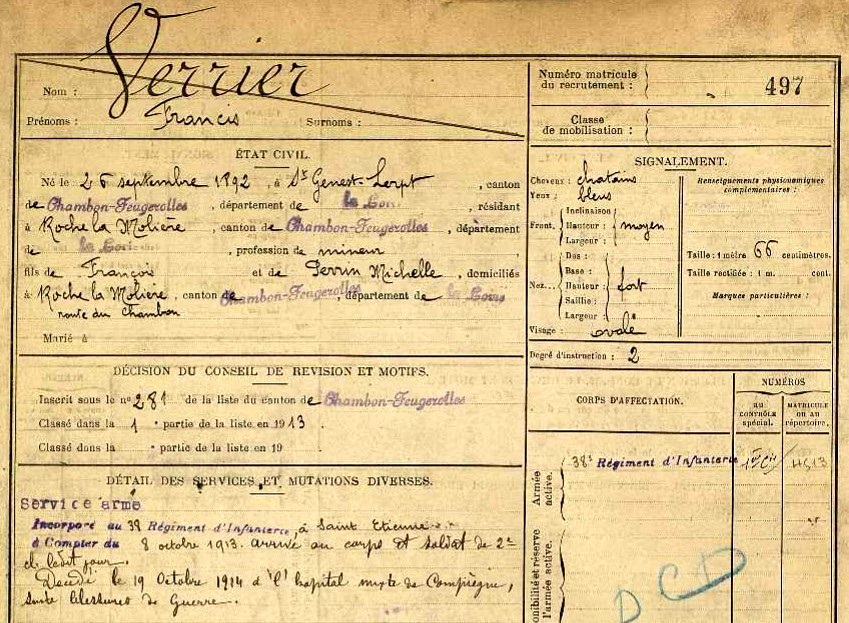 Nom : Verrier
Prénoms : Francis Surnoms :
ÉTAT CIVIL.
Né le 26 septembre 1892, à St Genest-Lerpt, canton
de Chambon-Feugerolles, département de la Loire, résidant
à Roche la Molière, canton de Chambon-Feugerolles, département
de la Loire, profession de mineur
fils de François et de Perrin Michelle, domiciliés
à Roche la Molière, canton de Chambon-Feugerolles, département de la Loire
route du Chambon
Marié à
DÉCISION DU CONSEIL DE REVISION ET MOTIFS.
Inscrit sous le n° 281 de la liste du canton de Chambon-Feugerolles
Classé dans la 1e partie de la liste en 1913.
Classé dans la e partie de la liste en 19
DÉTAIL DES SERVICES ET MUTATIONS DIVERSES.
Service armé
Incorporé au 38 Régiment d'Infanterie, à Saint Etienne
à Compter du 8 octobre 1913. arrivé au corps et soldat de 2e
cl. ledit jour.
Décédé le 19 Octobre 1914 à l'hopital mixte de Compiègne,
suite blessures de Guerre.
Numéro matricule
du recrutement : 497
Classe
de mobilisation :
SIGNALEMENT.
Cheveux : chatains
Yeux : bleus
Front. Inclinaison :
Hauteur : moyen
Largeur :
Nez... Dos :
Base :
Hauteur : fort
Saillie :
Largeur :
Visage : ovale
Renseignements physionomiques
complémentaires :
Taille : 1 mètre 66 centimètres.
Taille rectifiée : 1 m. cent.
Marques particulières :
Degré d'instruction : 2
CORPS D'AFFECTATION.
NUMÉROS
AU
CONTRÔLE
spécial.
MATRICULE
OU AU
répertoire.
Armée
active.
38e Régiment d'Infanterie 4513
onibilité et réserve
l'armée active.
DCD